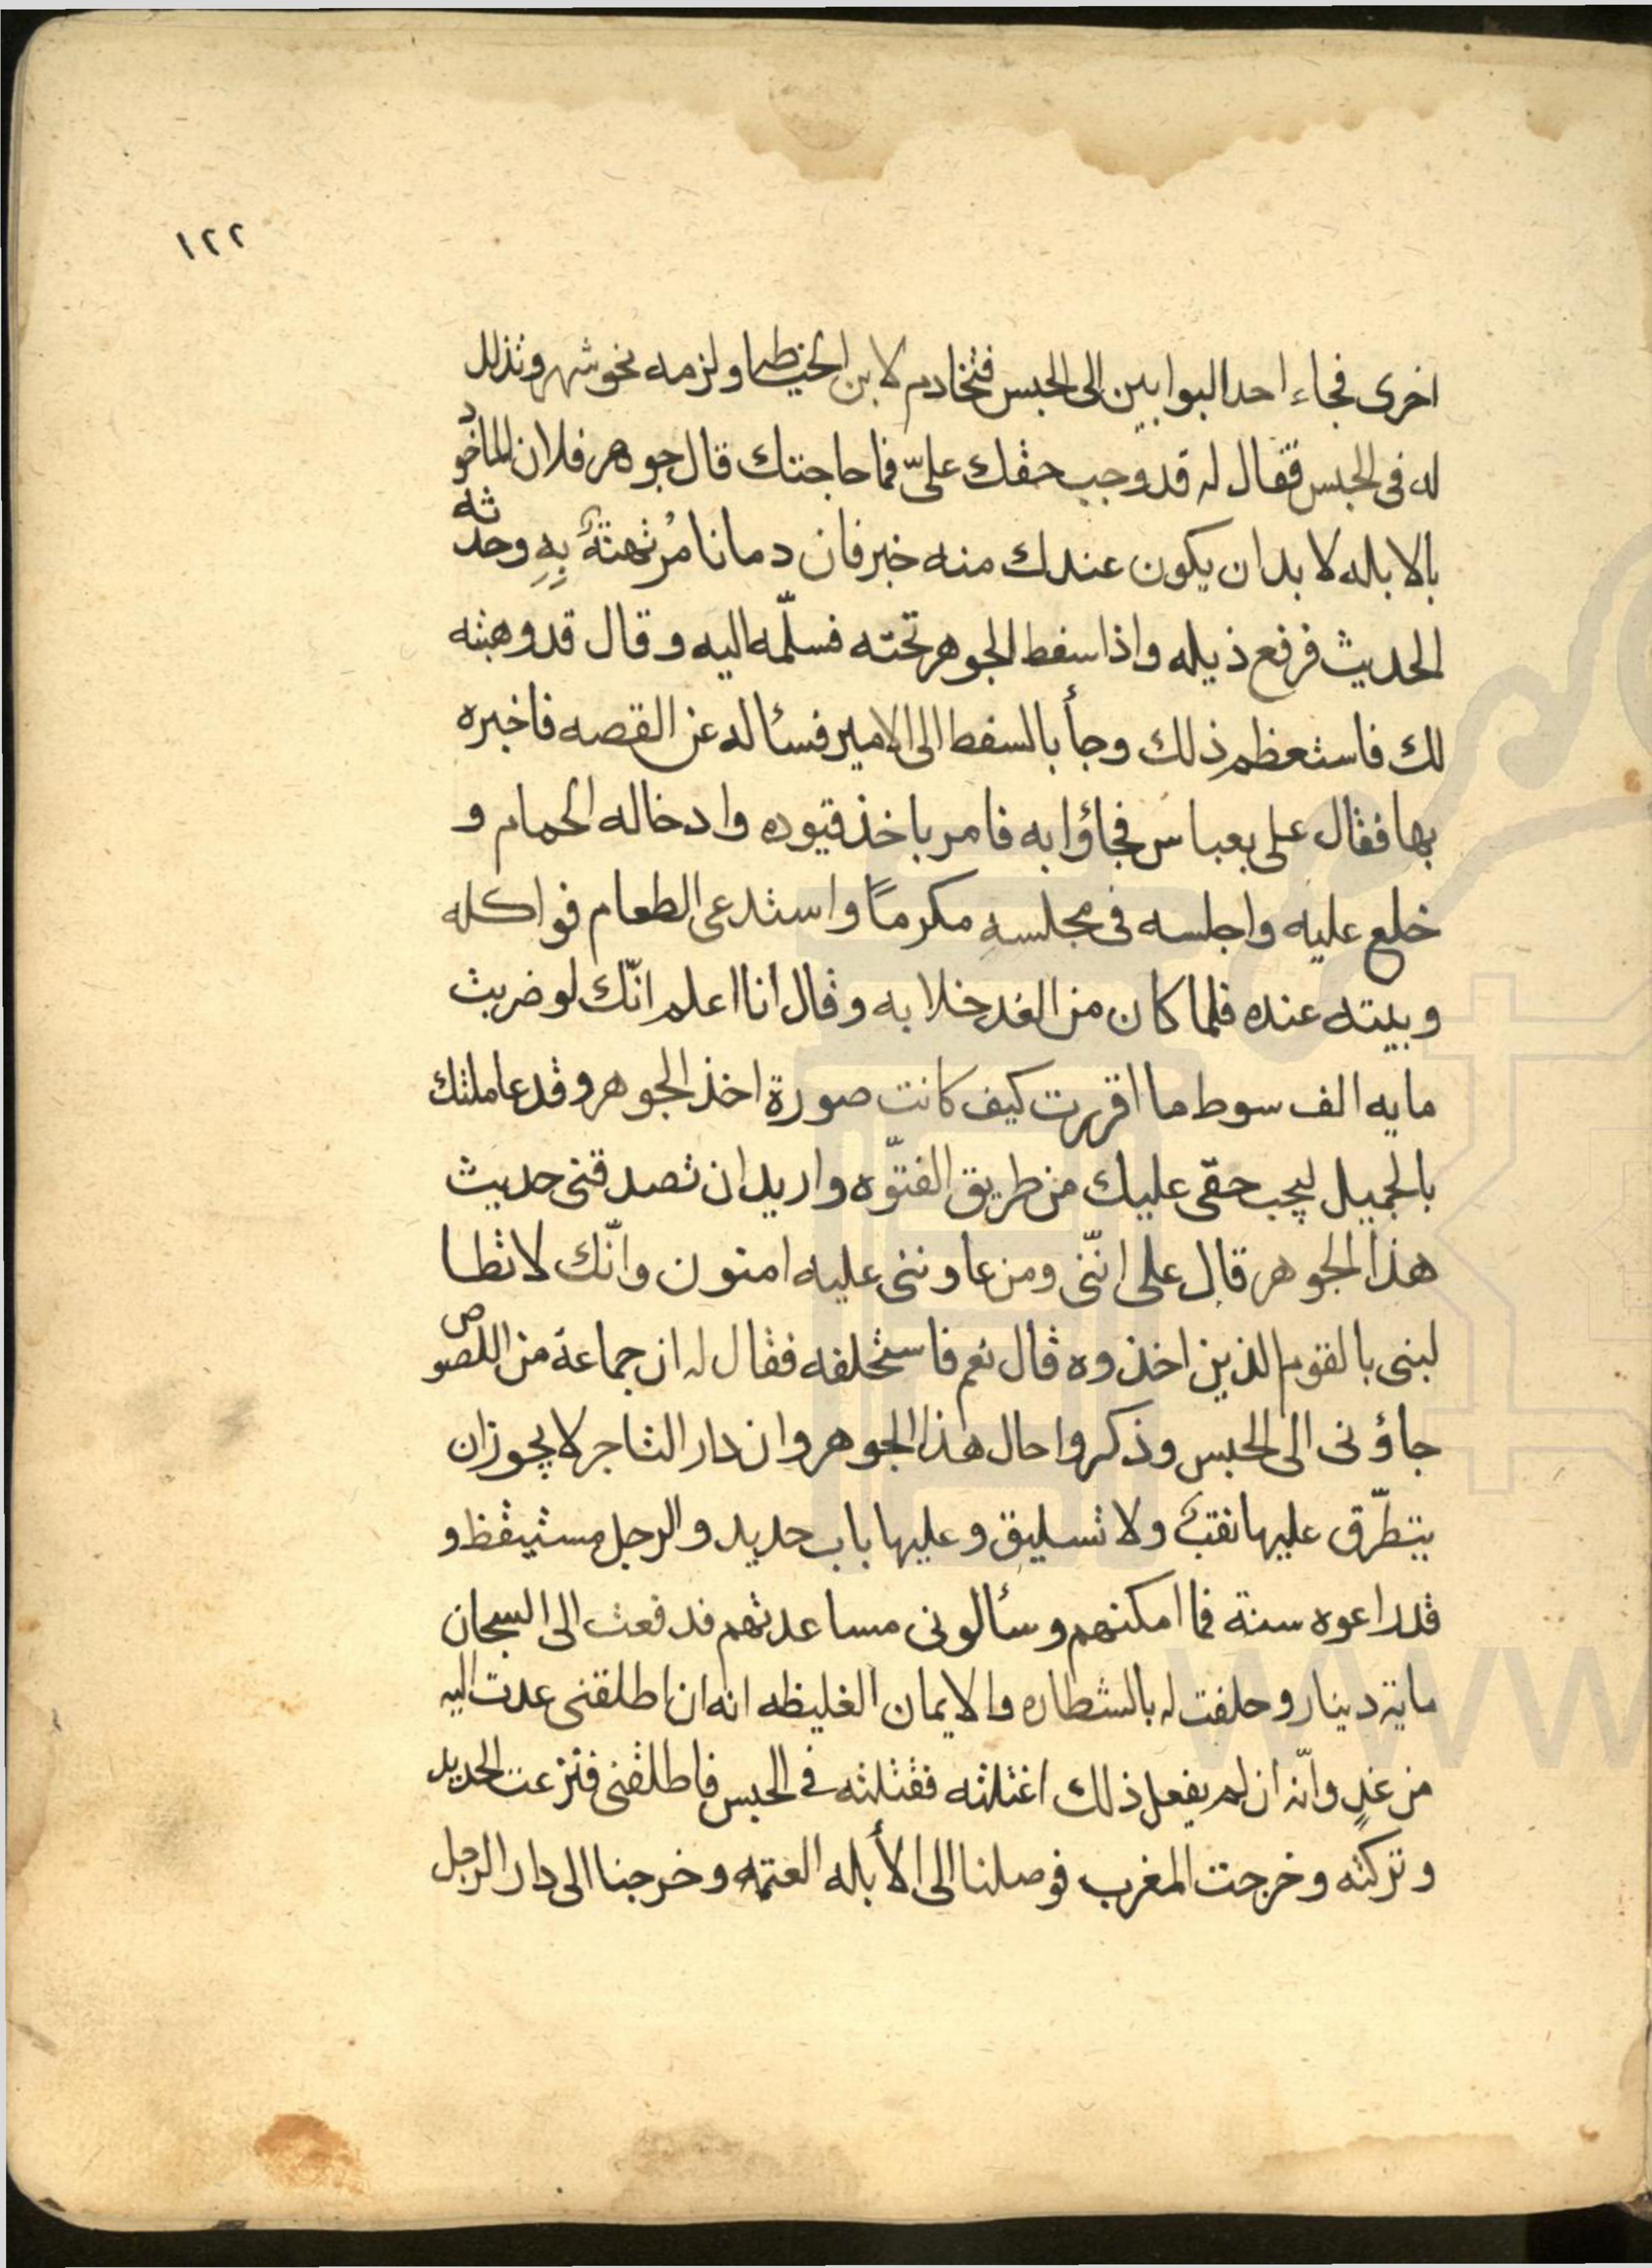 ١٢٢
اخرى فجاء احد البوابين الى الحبس فتخادم لابن الخياطه ولزمه نحو شهر وتذلل
له فى الحبس فقال له قد وجب حقك علىّ فما حاجتك قال جوهر فلان الماخوذ
بالابله لا بد ان يكون عندك منه خبر فان دمانا مُرتهنةٌ بِهِ وحدثه
الحديث فرفع ذيله واذا سفط الجوهر تحته فسلّمه اليه وقال قد وهبته
لك فاستعظم ذلك وجأ بالسفط الى الامير فسئاله عن القصه فاخبره
بها فقال على بعباس فجاؤا به فامر باخذ قيوده وادخاله الحمام و
خلع عليه واجلسه فى مجلسهِ مكرماً واستدعى الطعام فواكله
وبيته عنده فلما كان من الغد خلا به وقال انا اعلم انّك لو ضربت
مايه الف سوط ما اقررت كيف كانت صورة اخذ الجوهر وقد عاملتك
بالجميل ليجب حقى عليك من طريق الفتوّه واريد ان تصدقنى حديث
هذا الجوهر قال على انّنى ومن عاوننى عليه امنون وانّك لا تطا
لبنى بالقوم الذين اخذوه قال نعم فاستحلفه فقال له ان جماعة من اللصوص
جاؤنى الى الحبس وذكروا حال هذا الجوهر وان دار التاجر لا يجوز ان
يتطرّق عليها نقبٌ ولا تسليق وعليها باب حديد والرجل مستيقظ و
قد راعوه سنة فما امكنهم وسئالونى مساعدتهم فدفعت الى السجان
ماية دينار وحلفت له بالشطاره والايمان الغليظه انه ان اطلقنى عدت اليه
من غدٍ وانّه ان لم يفعل ذلك اغتلته فقتلته فى الحبس فاطلقنى فنزعت الحديد
وتركته وخرجت المغرب فوصلنا الى الأبله العتمه وخرجنا الى دار الرجل